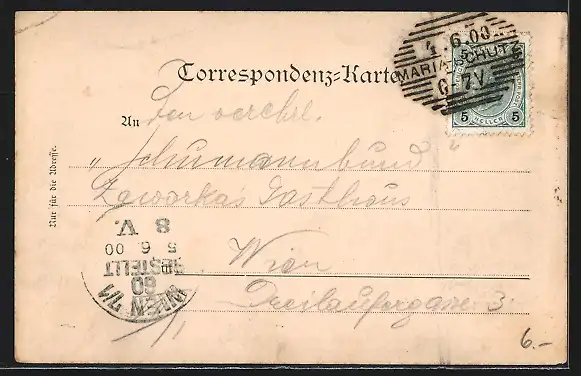 4.6.00
MARIA-SCHUTZ
6-7V
5 5
HELLER
Correspondenz-Karte
An Den verehrl.
„Schumannbund“
Zaworka's Gasthaus
Wien
Dreilaufergasse 3
Nur für die Adresse.
WIEN 7/1
60
BESTELLT
5 6 00
8 V.
6.-